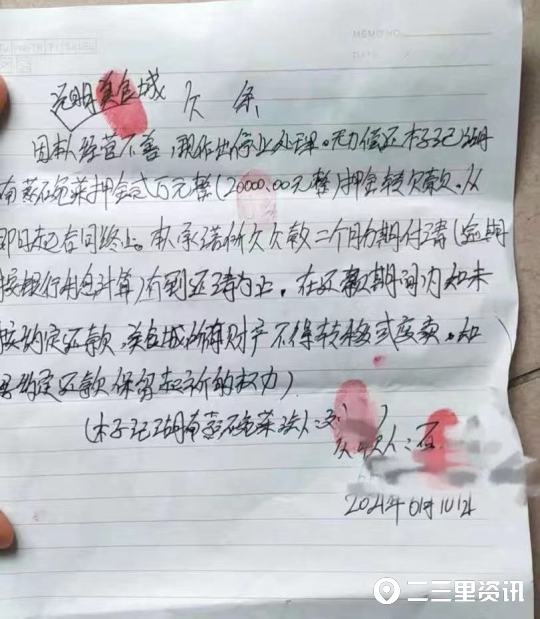 MEMO NO.
DATE
美食城 欠条
因本人经营不善,现作出停业处理。无力偿还木子记湖
南蒸碗菜押金贰万元整(20000.00元整)押金转欠款。从
即日起合同终止。本人承诺所欠欠款二个月分期付清(
按银行利息计算)有到还清为止。在还款期间内如未
按约定还款,美食城所有财产不得转移或变卖。如
约定还款保留起诉的权力)
(木子记湖南蒸碗菜法人:刘
欠款人:石
2021年6月10日
二三里资讯